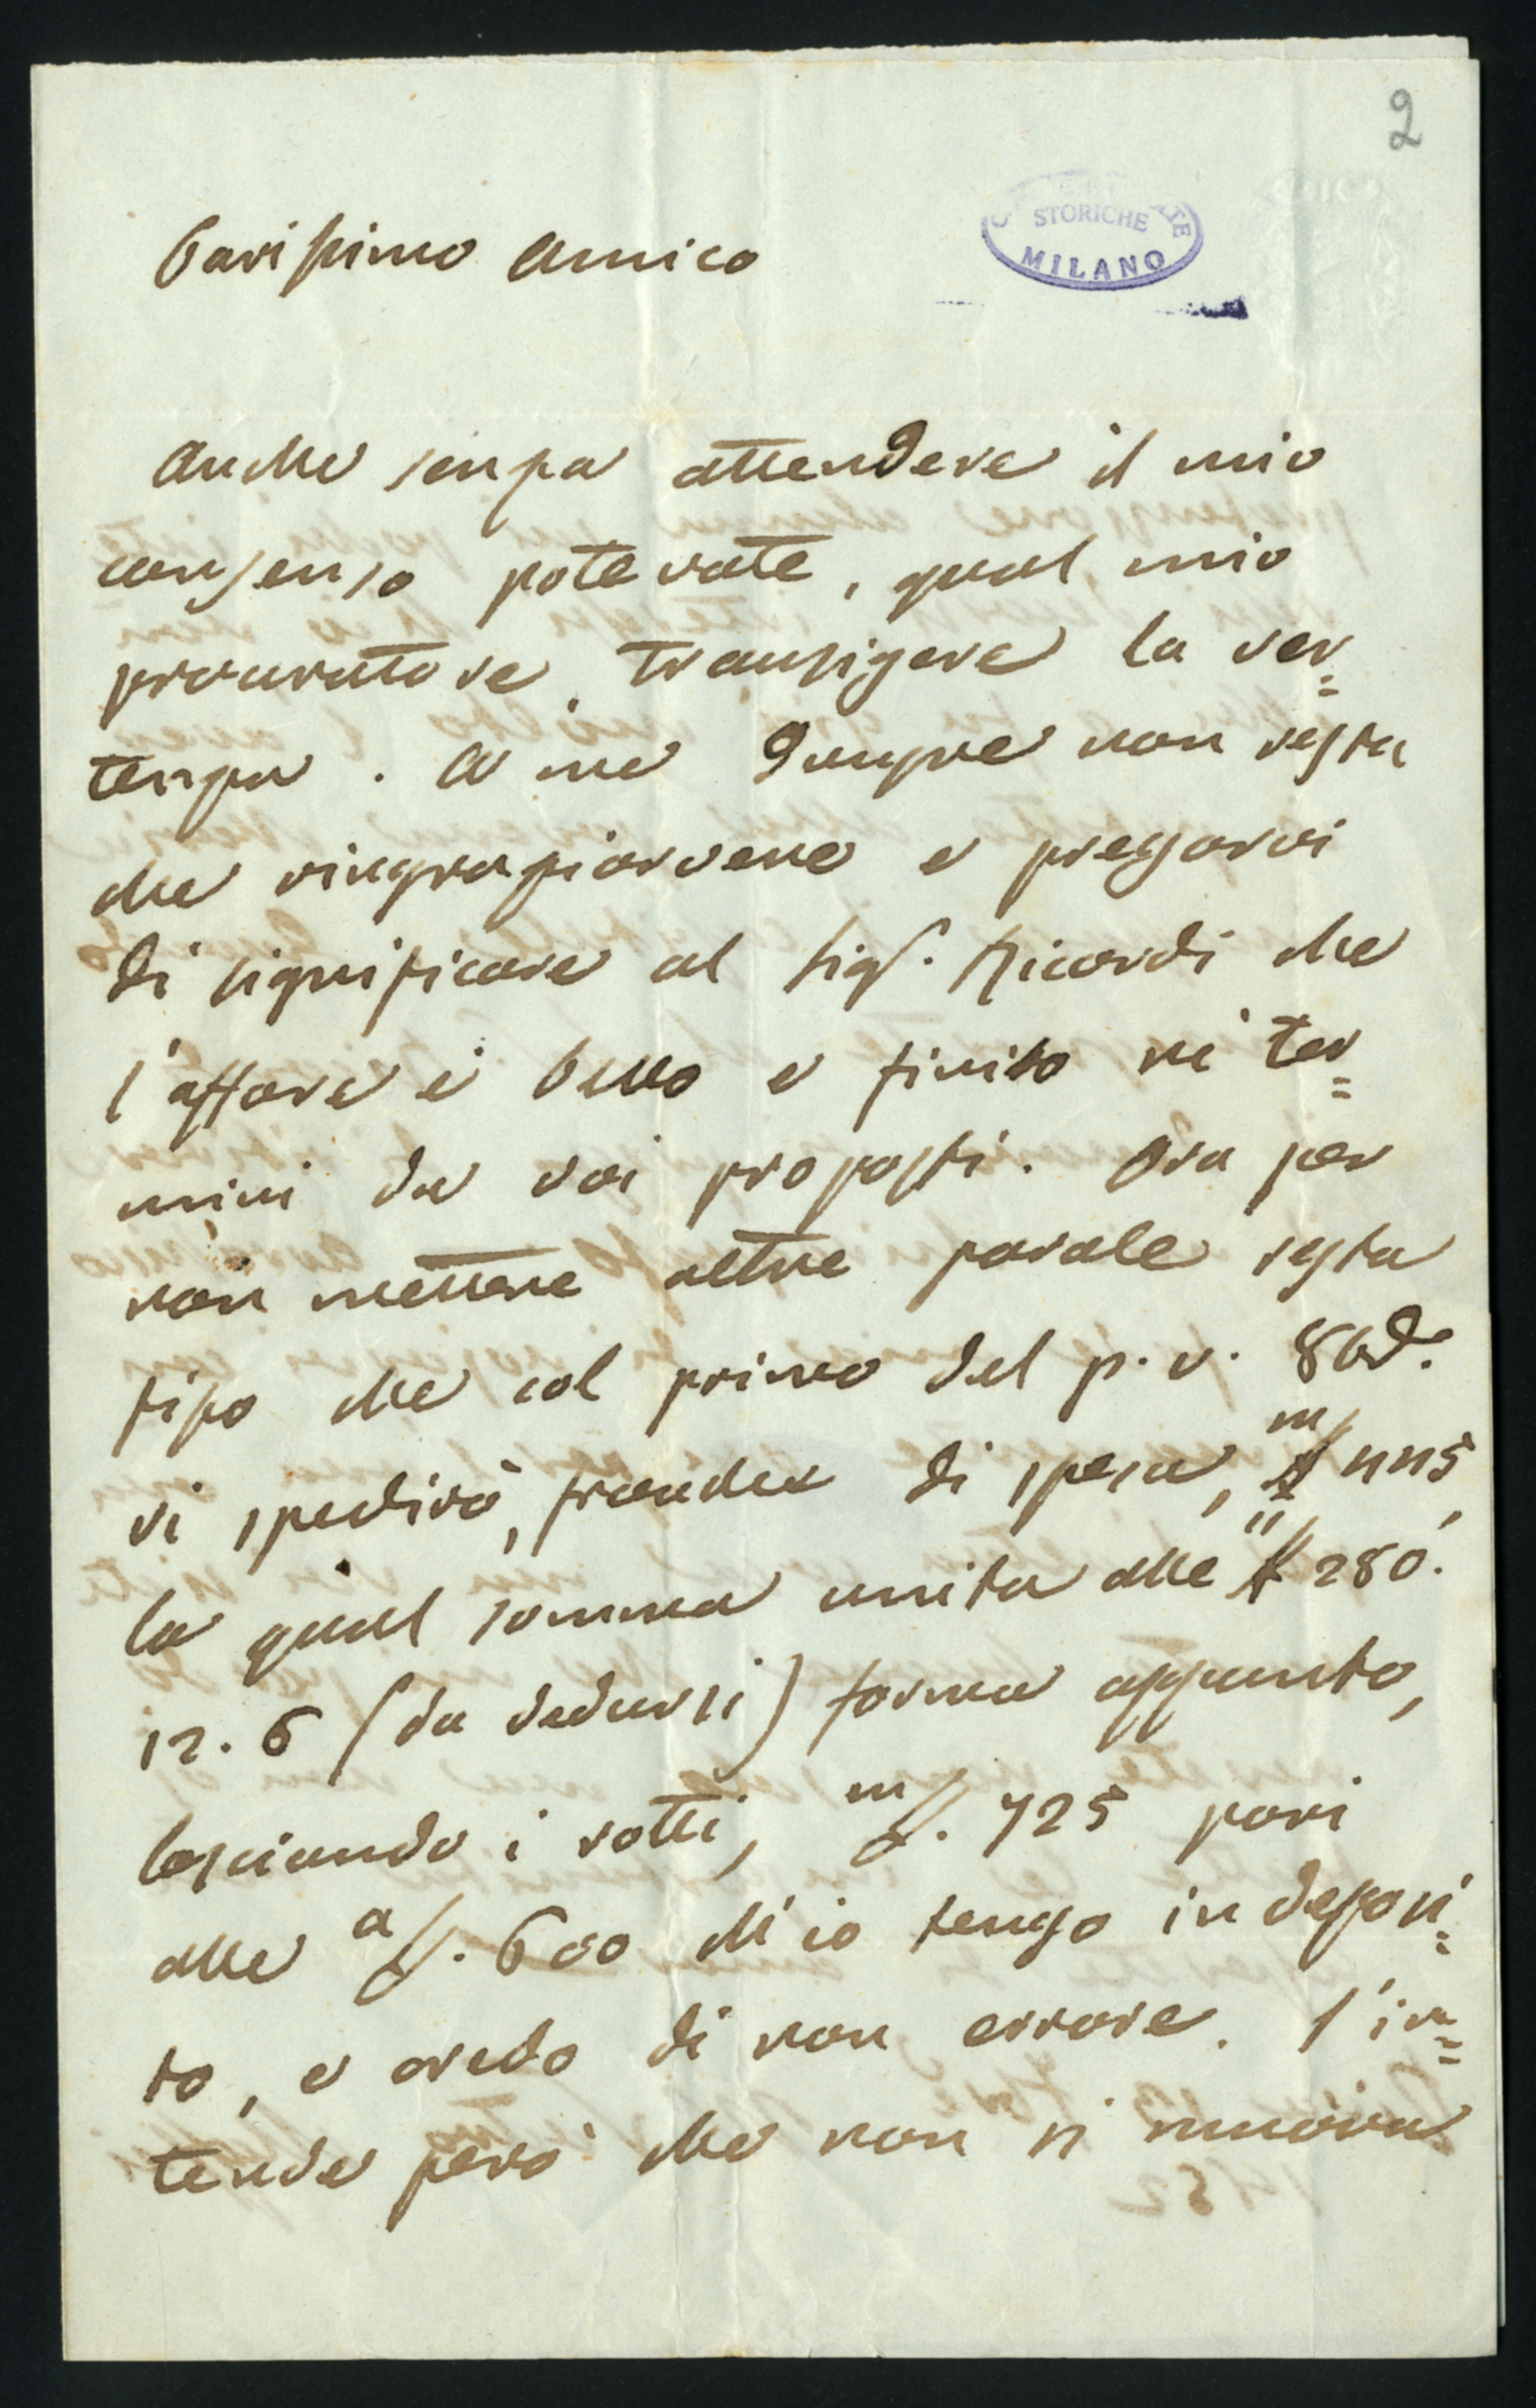 2
STORICHE
MILANO
Carissimo Amico
Anche senza attendere il mio
consenso potevate, qual mio
procuratore, transigere la ver=
tenza. A me dunque non resta
che ringraziarvene e pregarvi
di significare al Sigr. Ricordi che
l'affare è bello e finito ne' ter=
mini da voi proposti. Ora per
non mettere altre parole resta
fisso che col primo del p. v.
vi spedirà, franche di spesa,
la qual somma unita alle 280.
12. 6 (da dedursi) forma appunto,
lasciando i rotti, m/£. 725 pari
alle a/£. 600 ch'io tengo in deposi=
to, e credo di non errare. S'in=
tende però che non si muova